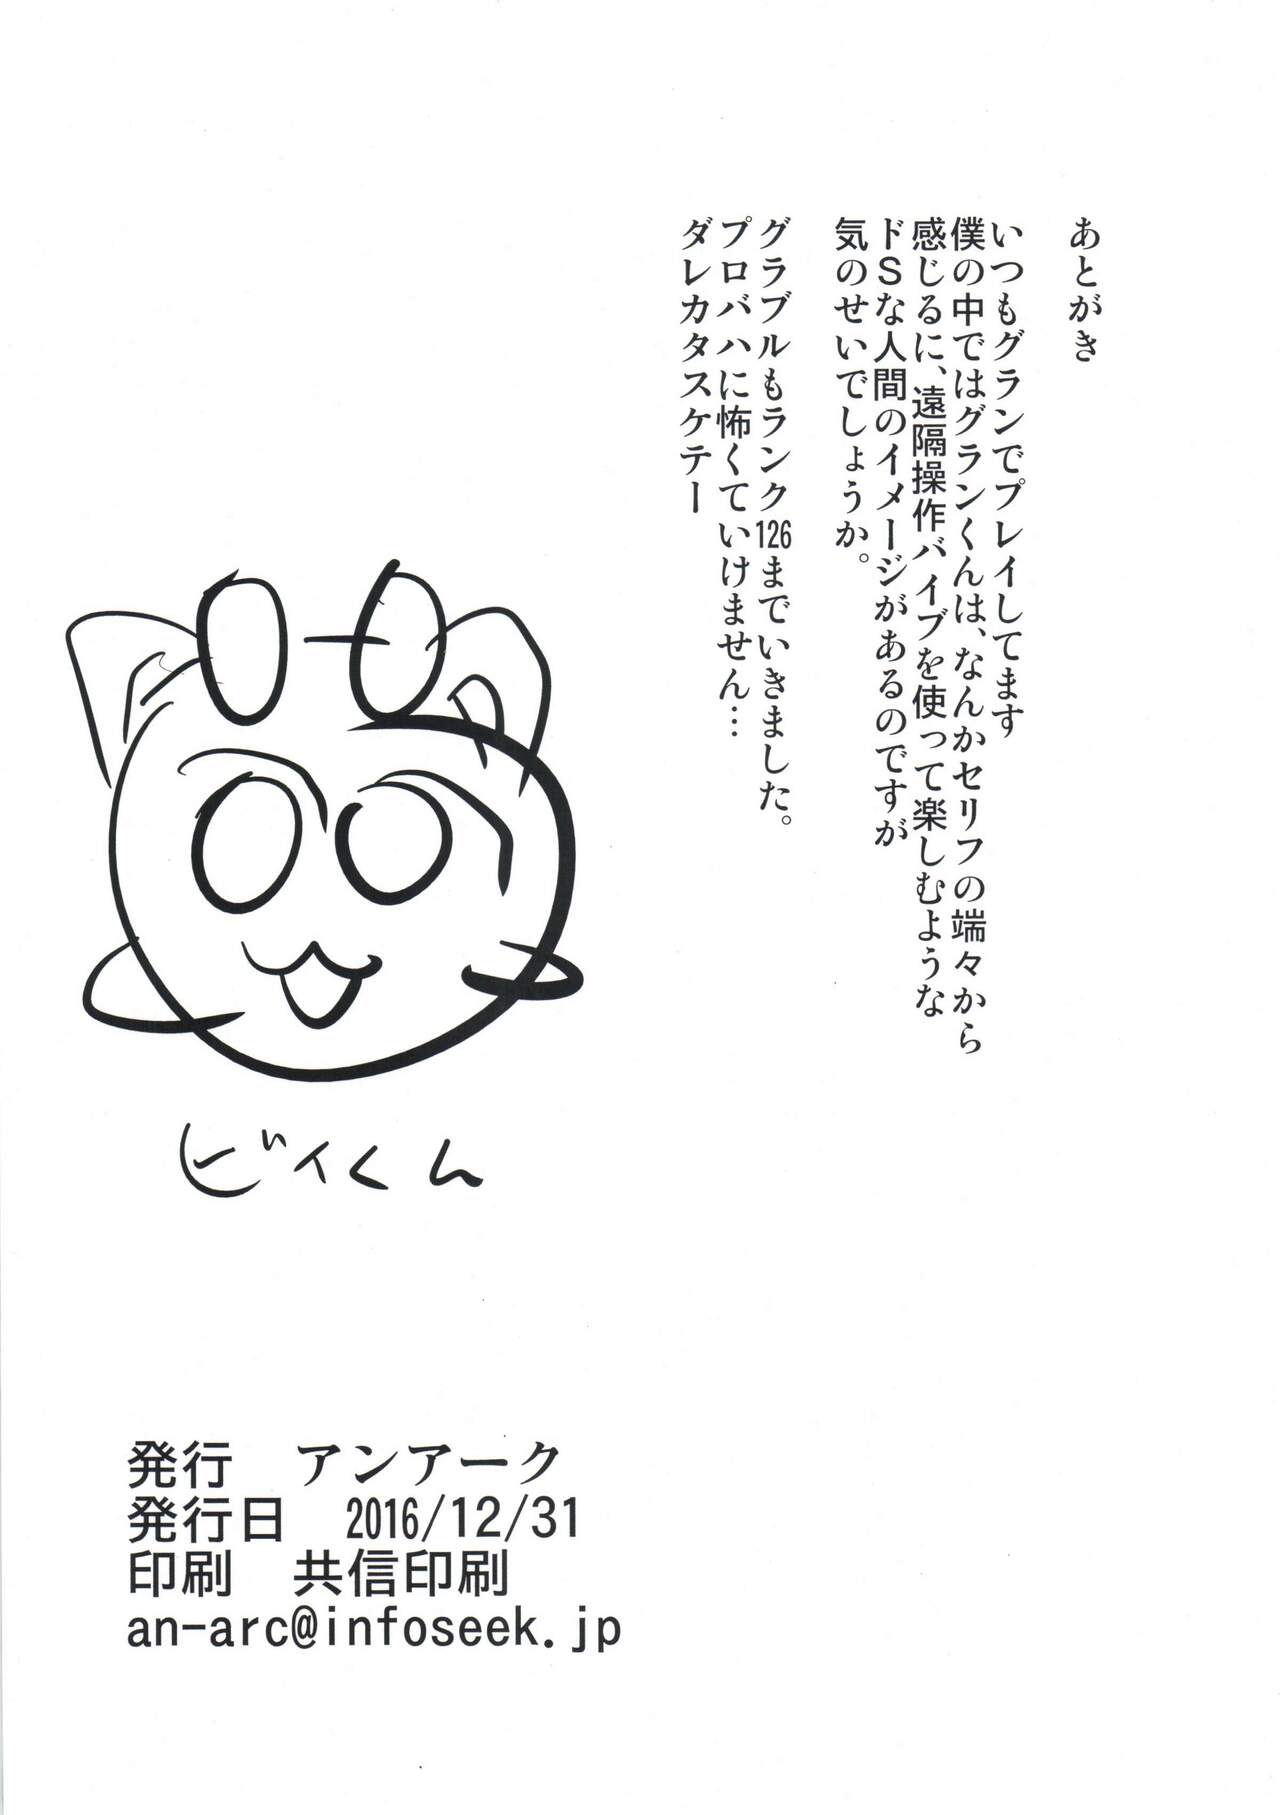 あとがき
いつもグランでプレイしてます
僕の中ではグランくんは、なんかセリフの端々から
感じるに、遠隔操作バイブを使って楽しむような
ドSな人間のイメージがあるのですが
気のせいでしょうか。
グラブルもランク126までいきました。
プロバハに怖くていけません…
ダレカタスケテー
ビィくん
発行　アンアーク
発行日　2016/12/31
印刷　共信印刷
an-arc@infoseek.jp